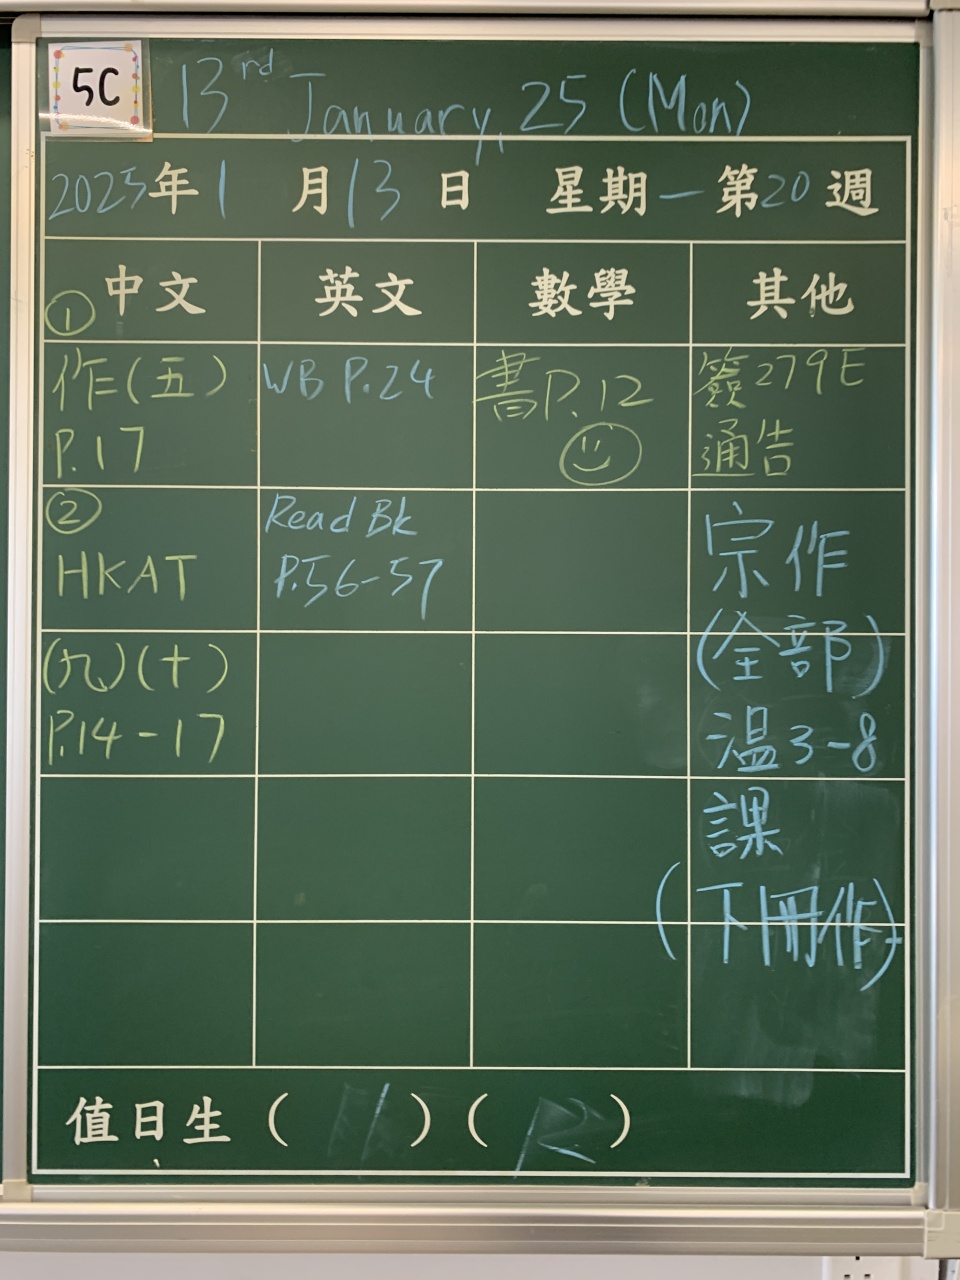 5C
13rd January, 25 (Mon)
2025年1月13日 星期一 第20週
中文 英文 數學 其他
①
作(五)
P.17
WB P.24
書P.12
簽279E
通告
②
HKAT
Read Bk
P.56-57
宗作
(全部)
(九)(十)
P.14-17
温3-8
課
(下冊作)
值日生 ( ) ( )